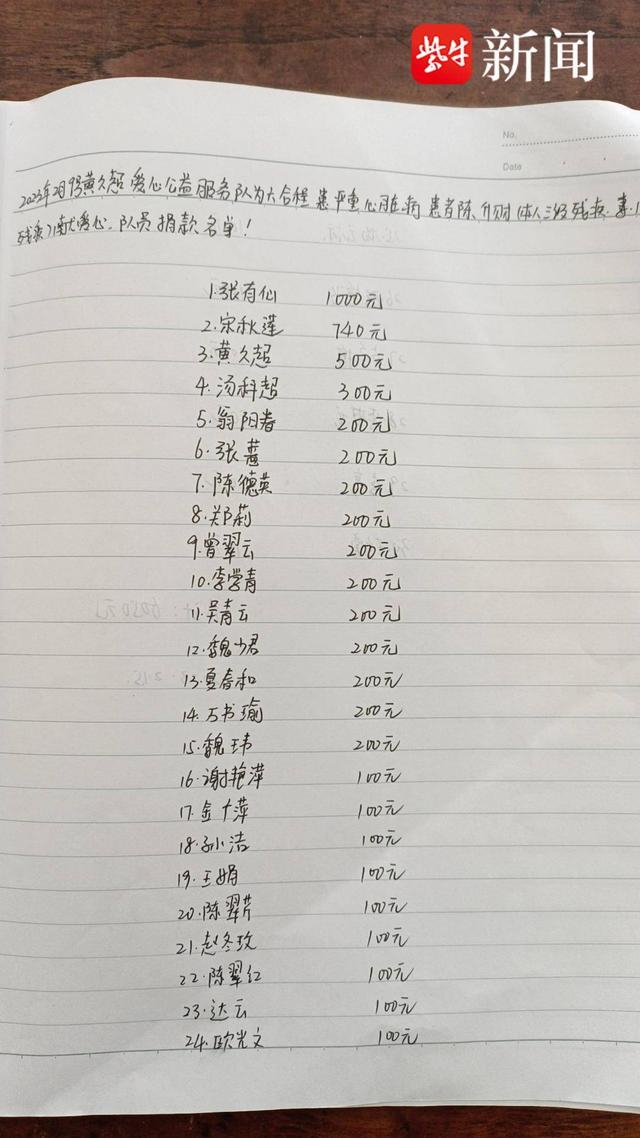 紫牛 新闻
No.
Date
2023年2月9号黄久超爱心公益服务队为六合程患严重心脏病患者陈、介绍人三级残疾
残疾 爱心队员捐款名单!
1.张有仙 1000元
2.宋秋莲 740元
3.黄久超 500元
4.汤科超 300元
5.翁阳春 200元
6.张蔷 200元
7.陈德英 200元
8.郑莉 200元
9.曾翠云 200元
10.李学青 200元
11.吴青云 200元
12.魏少君 200元
13.夏春和 200元
14.万书瑜 200元
15.魏玮 200元
16.谢艳萍 100元
17.金才萍 100元
18.孙洁 100元
19.王娟 100元
20.陈翠芹 100元
21.赵冬玫 100元
22.陈翠红 100元
23.达云 100元
24.欧光文 100元